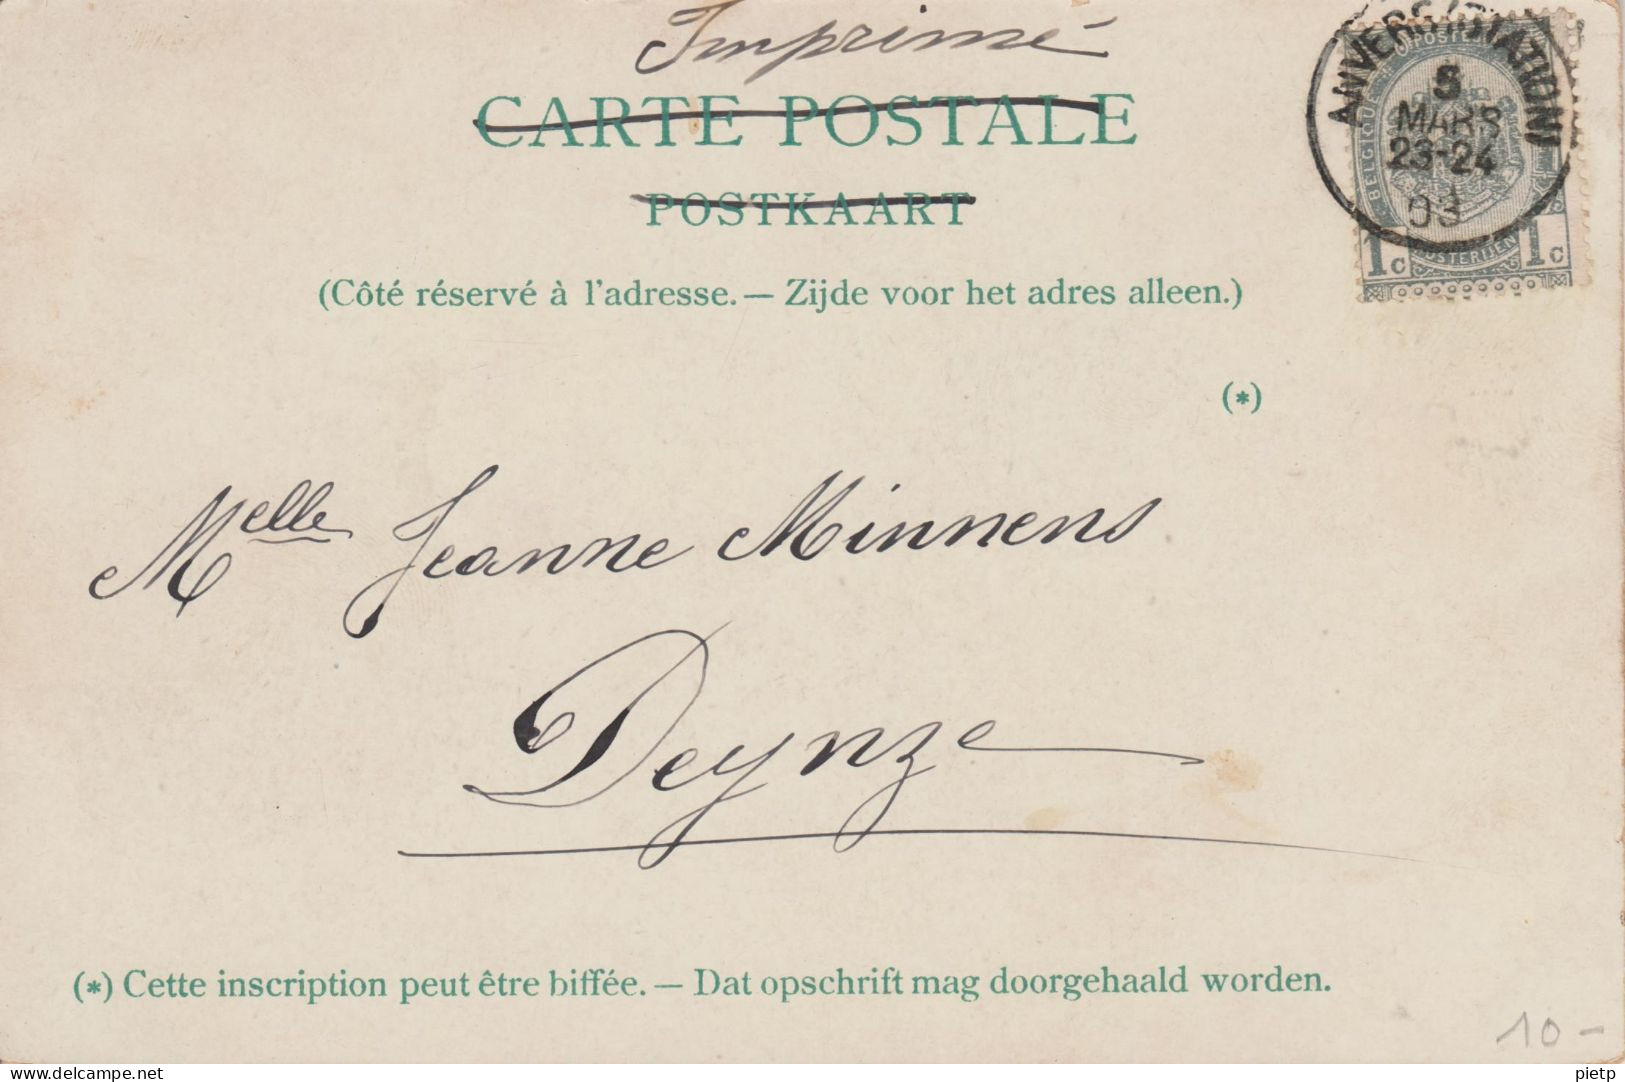 Imprimé
CARTE POSTALE
POSTKAART
(Côté réservé à l'adresse. — Zijde voor het adres alleen.)
ANVERS (STATION)
5
MARS
23-24
03
POSTES
BELGIQUE
1c POSTERIJEN 1c
(*)
Melle Jeanne Minnens
Deynze
(*) Cette inscription peut être biffée. — Dat opschrift mag doorgehaald worden.
10 -
Delcampe.net
pietp